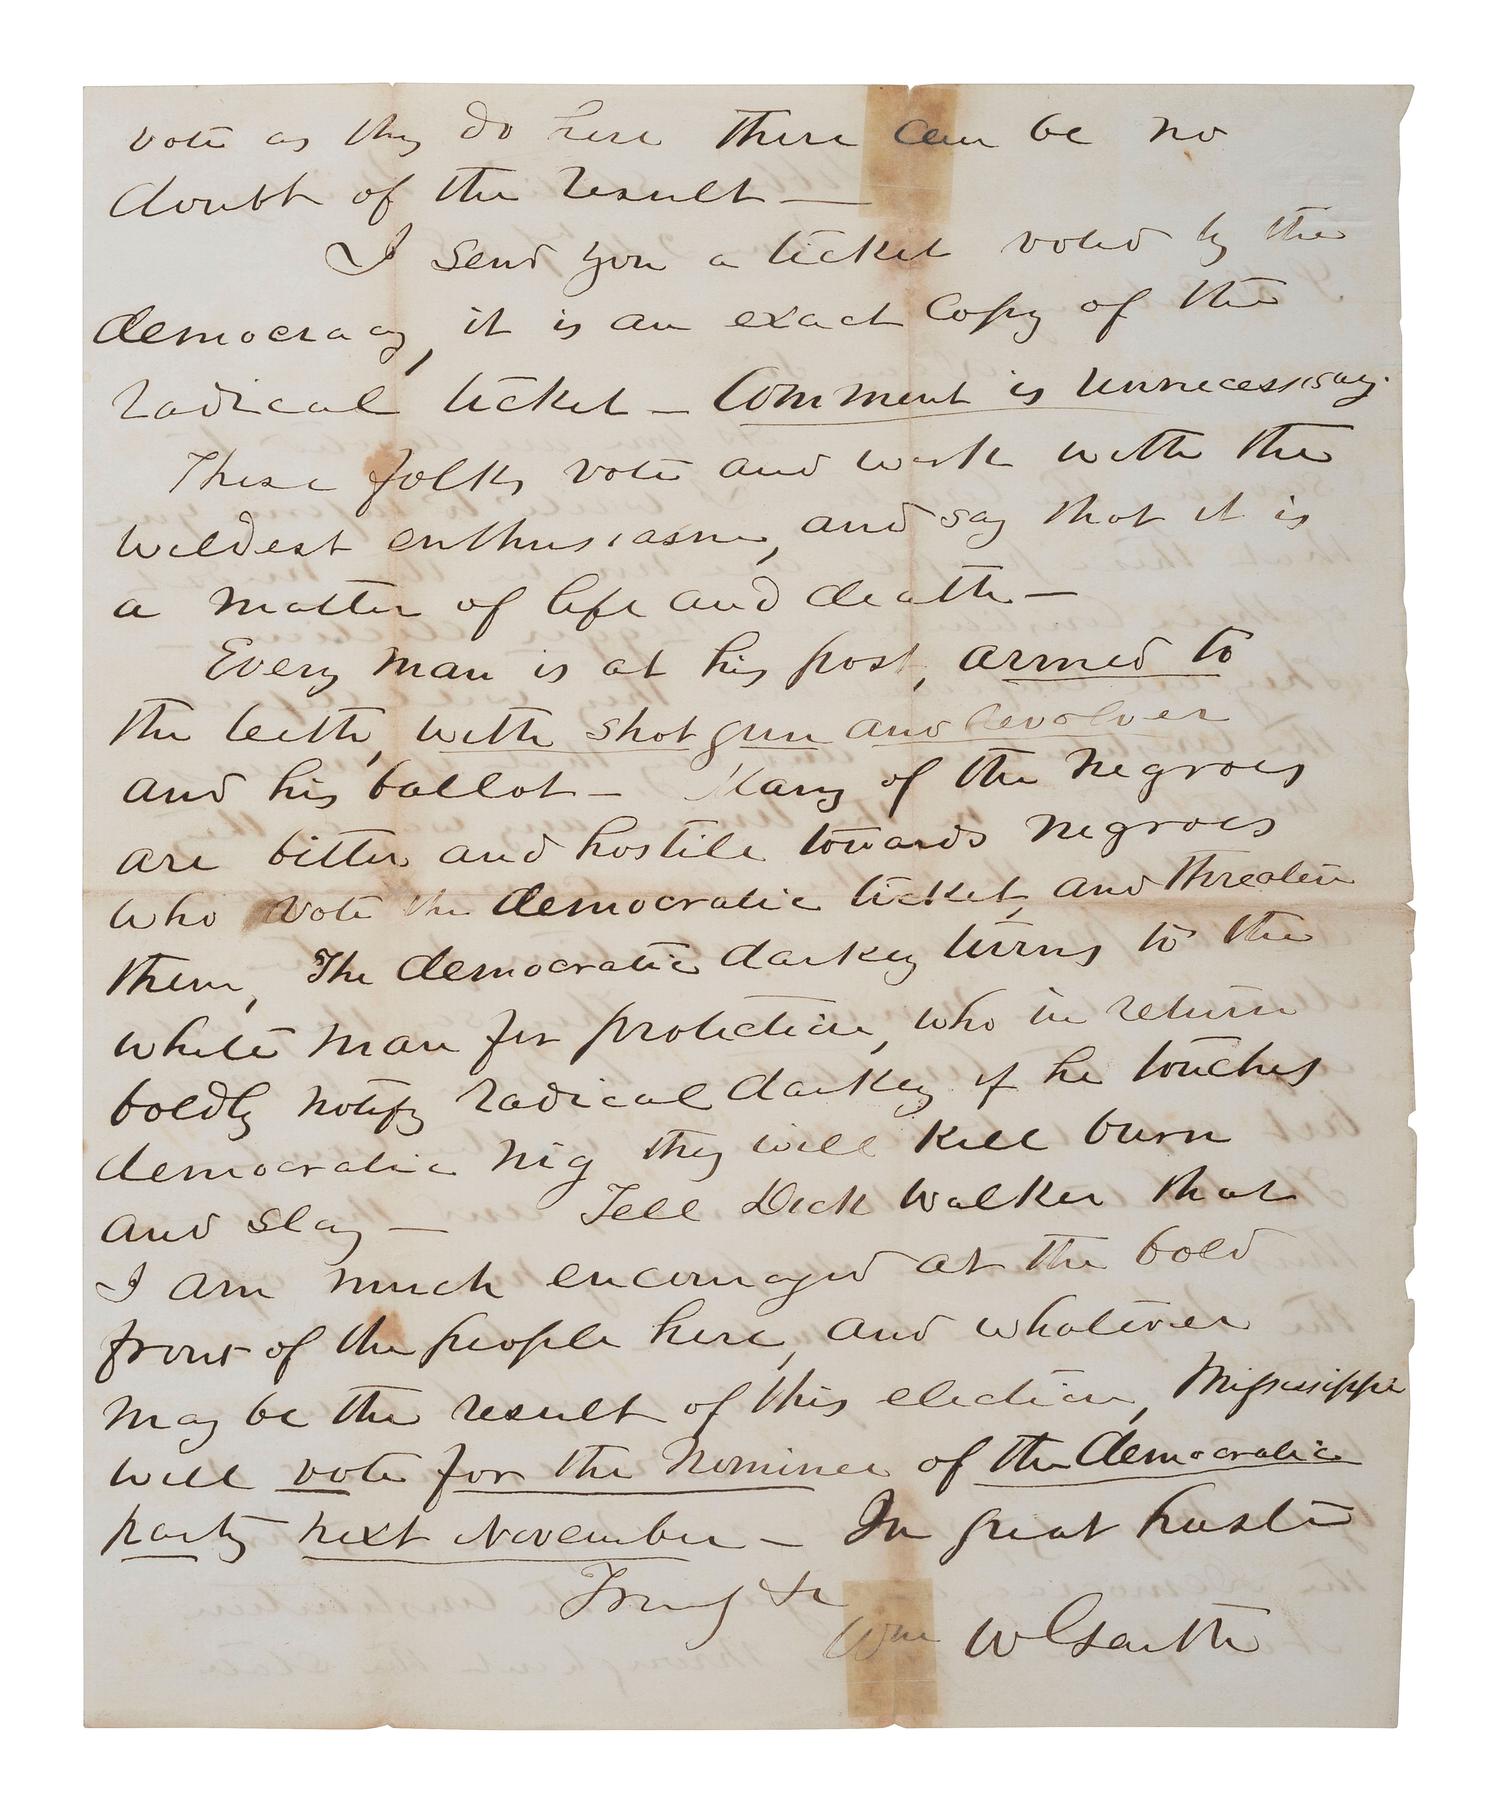 vote as they do here there can be no
doubt of the result —
I send you a ticket voted by the
democracy, it is an exact Copy of the
radical ticket — Comment is unnecessary.
These folks vote and work with the
wildest enthusiasm, and say that it is
a matter of life and death —
Every man is at his post, armed to
the teeth, with shot gun and revolver
and his ballot — Many of the negroes
are bitter and hostile towards negroes
who vote the democratic ticket, and threaten
them, The democratic darkey turns to the
white man for protection, who in return
boldly notify radical darkey if he touches
democratic nig they will kill burn
and slay — Tell Dick Walker that
I am much encouraged at the bold
front of the people here, and whatever
may be the result of this election, Mississippi
will vote for the nominee of the democratic
party next November — In great haste
Truly &c
Wm W Garth